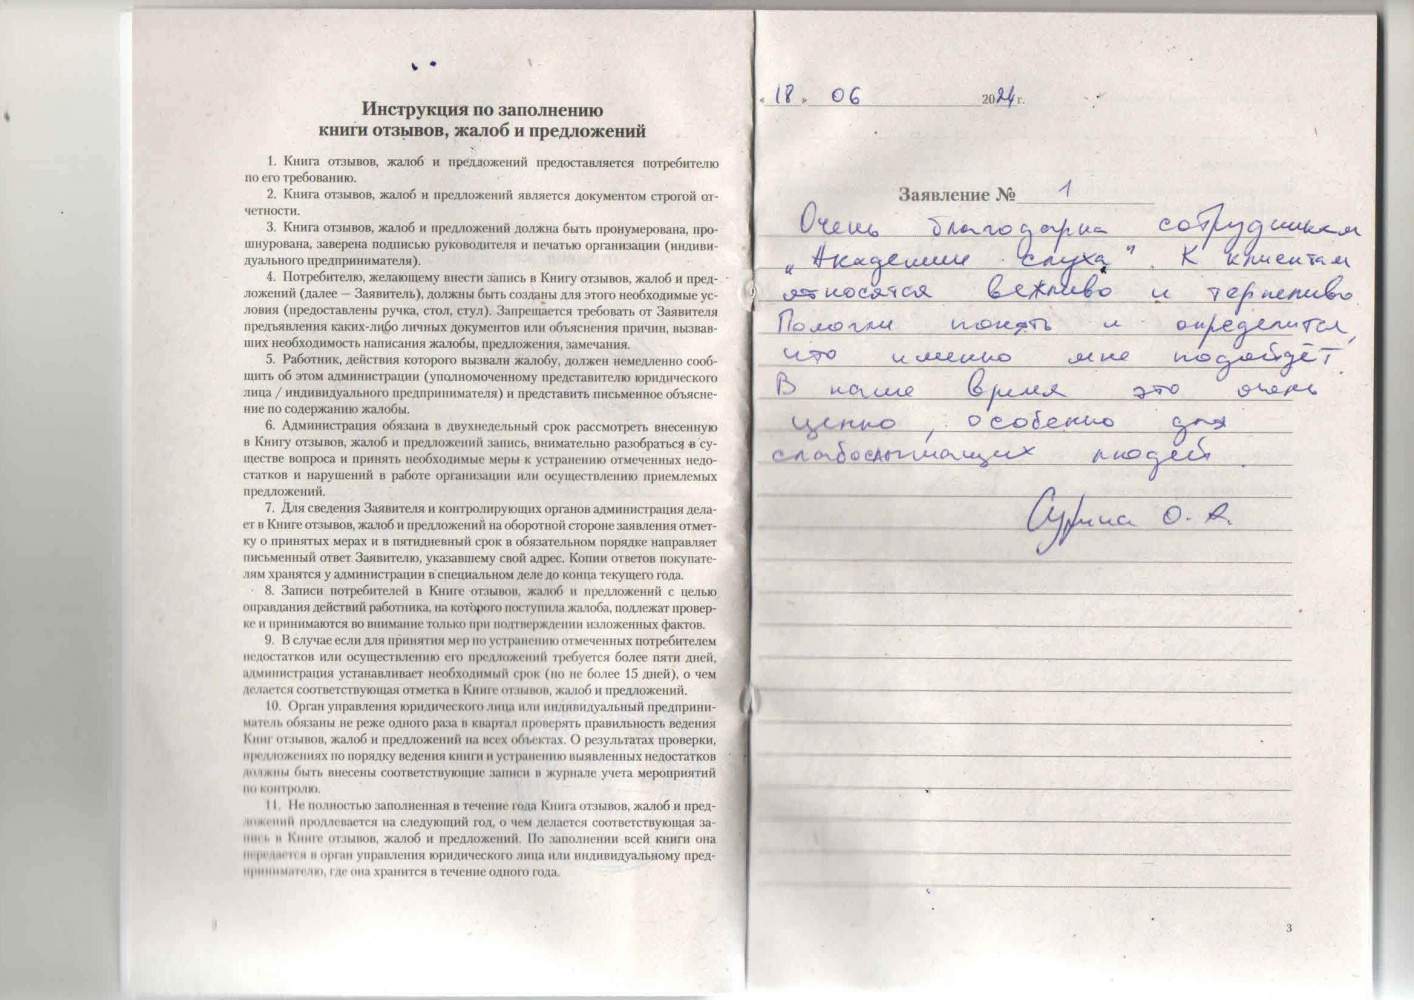 Инструкция по заполнению
книги отзывов, жалоб и предложений
1. Книга отзывов, жалоб и предложений предоставляется потребителю
по его требованию.
2. Книга отзывов, жалоб и предложений является документом строгой от-
четности.
3. Книга отзывов, жалоб и предложений должна быть пронумерована, про-
шнурована, заверена подписью руководителя и печатью организации (индиви-
дуального предпринимателя).
4. Потребителю, желающему внести запись в Книгу отзывов, жалоб и пред-
ложений (далее — Заявитель), должны быть созданы для этого необходимые ус-
ловия (предоставлены ручка, стол, стул). Запрещается требовать от Заявителя
предъявления каких-либо личных документов или объяснения причин, вызвав-
ших необходимость написания жалобы, предложения, замечания.
5. Работник, действия которого вызвали жалобу, должен немедленно сооб-
щить об этом администрации (уполномоченному представителю юридического
лица / индивидуального предпринимателя) и представить письменное объясне-
ние по содержанию жалобы.
6. Администрация обязана в двухнедельный срок рассмотреть внесенную
в Книгу отзывов, жалоб и предложений запись, внимательно разобраться в су-
ществе вопроса и принять необходимые меры к устранению отмеченных недо-
статков и нарушений в работе организации или осуществлению приемлемых
предложений.
7. Для сведения Заявителя и контролирующих органов администрация дела-
ет в Книге отзывов, жалоб и предложений на оборотной стороне заявления отмет-
ку о принятых мерах и в пятидневный срок в обязательном порядке направляет
письменный ответ Заявителю, указавшему свой адрес. Копии ответов покупате-
лям хранятся у администрации в специальном деле до конца текущего года.
8. Записи потребителей в Книге отзывов, жалоб и предложений с целью
оправдания действий работника, на которого поступила жалоба, подлежат провер-
ке и принимаются во внимание только при подтверждении изложенных фактов.
9. В случае если для принятия мер по устранению отмеченных потребителем
недостатков или осуществлению его предложений требуется более пяти дней,
администрация устанавливает необходимый срок (но не более 15 дней), о чем
делается соответствующая отметка в Книге отзывов, жалоб и предложений.
10. Орган управления юридического лица или индивидуальный предприни-
матель обязаны не реже одного раза в квартал проверять правильность ведения
Книг отзывов, жалоб и предложений на всех объектах. О результатах проверки,
предложениях по порядку ведения книги и устранению выявленных недостатков
должны быть внесены соответствующие записи в журнале учета мероприятий
по контролю.
11. Не полностью заполненная в течение года Книга отзывов, жалоб и пред-
ложений продлевается на следующий год, о чем делается соответствующая за-
пись в Книге отзывов, жалоб и предложений. По заполнении всей книги она
передается в орган управления юридического лица или индивидуальному пред-
принимателю, где она хранится в течение одного года.
« 18 » 06 2024 г.
Заявление № 1
Очень благодарна сотрудникам
„Академии слуха". К клиентам
относятся вежливо и терпеливо.
Помогли понять и определится,
что именно мне подойдёт.
В наше время это очень
ценно, особенно для
слабослышащих людей.
Сурина О. А.
3